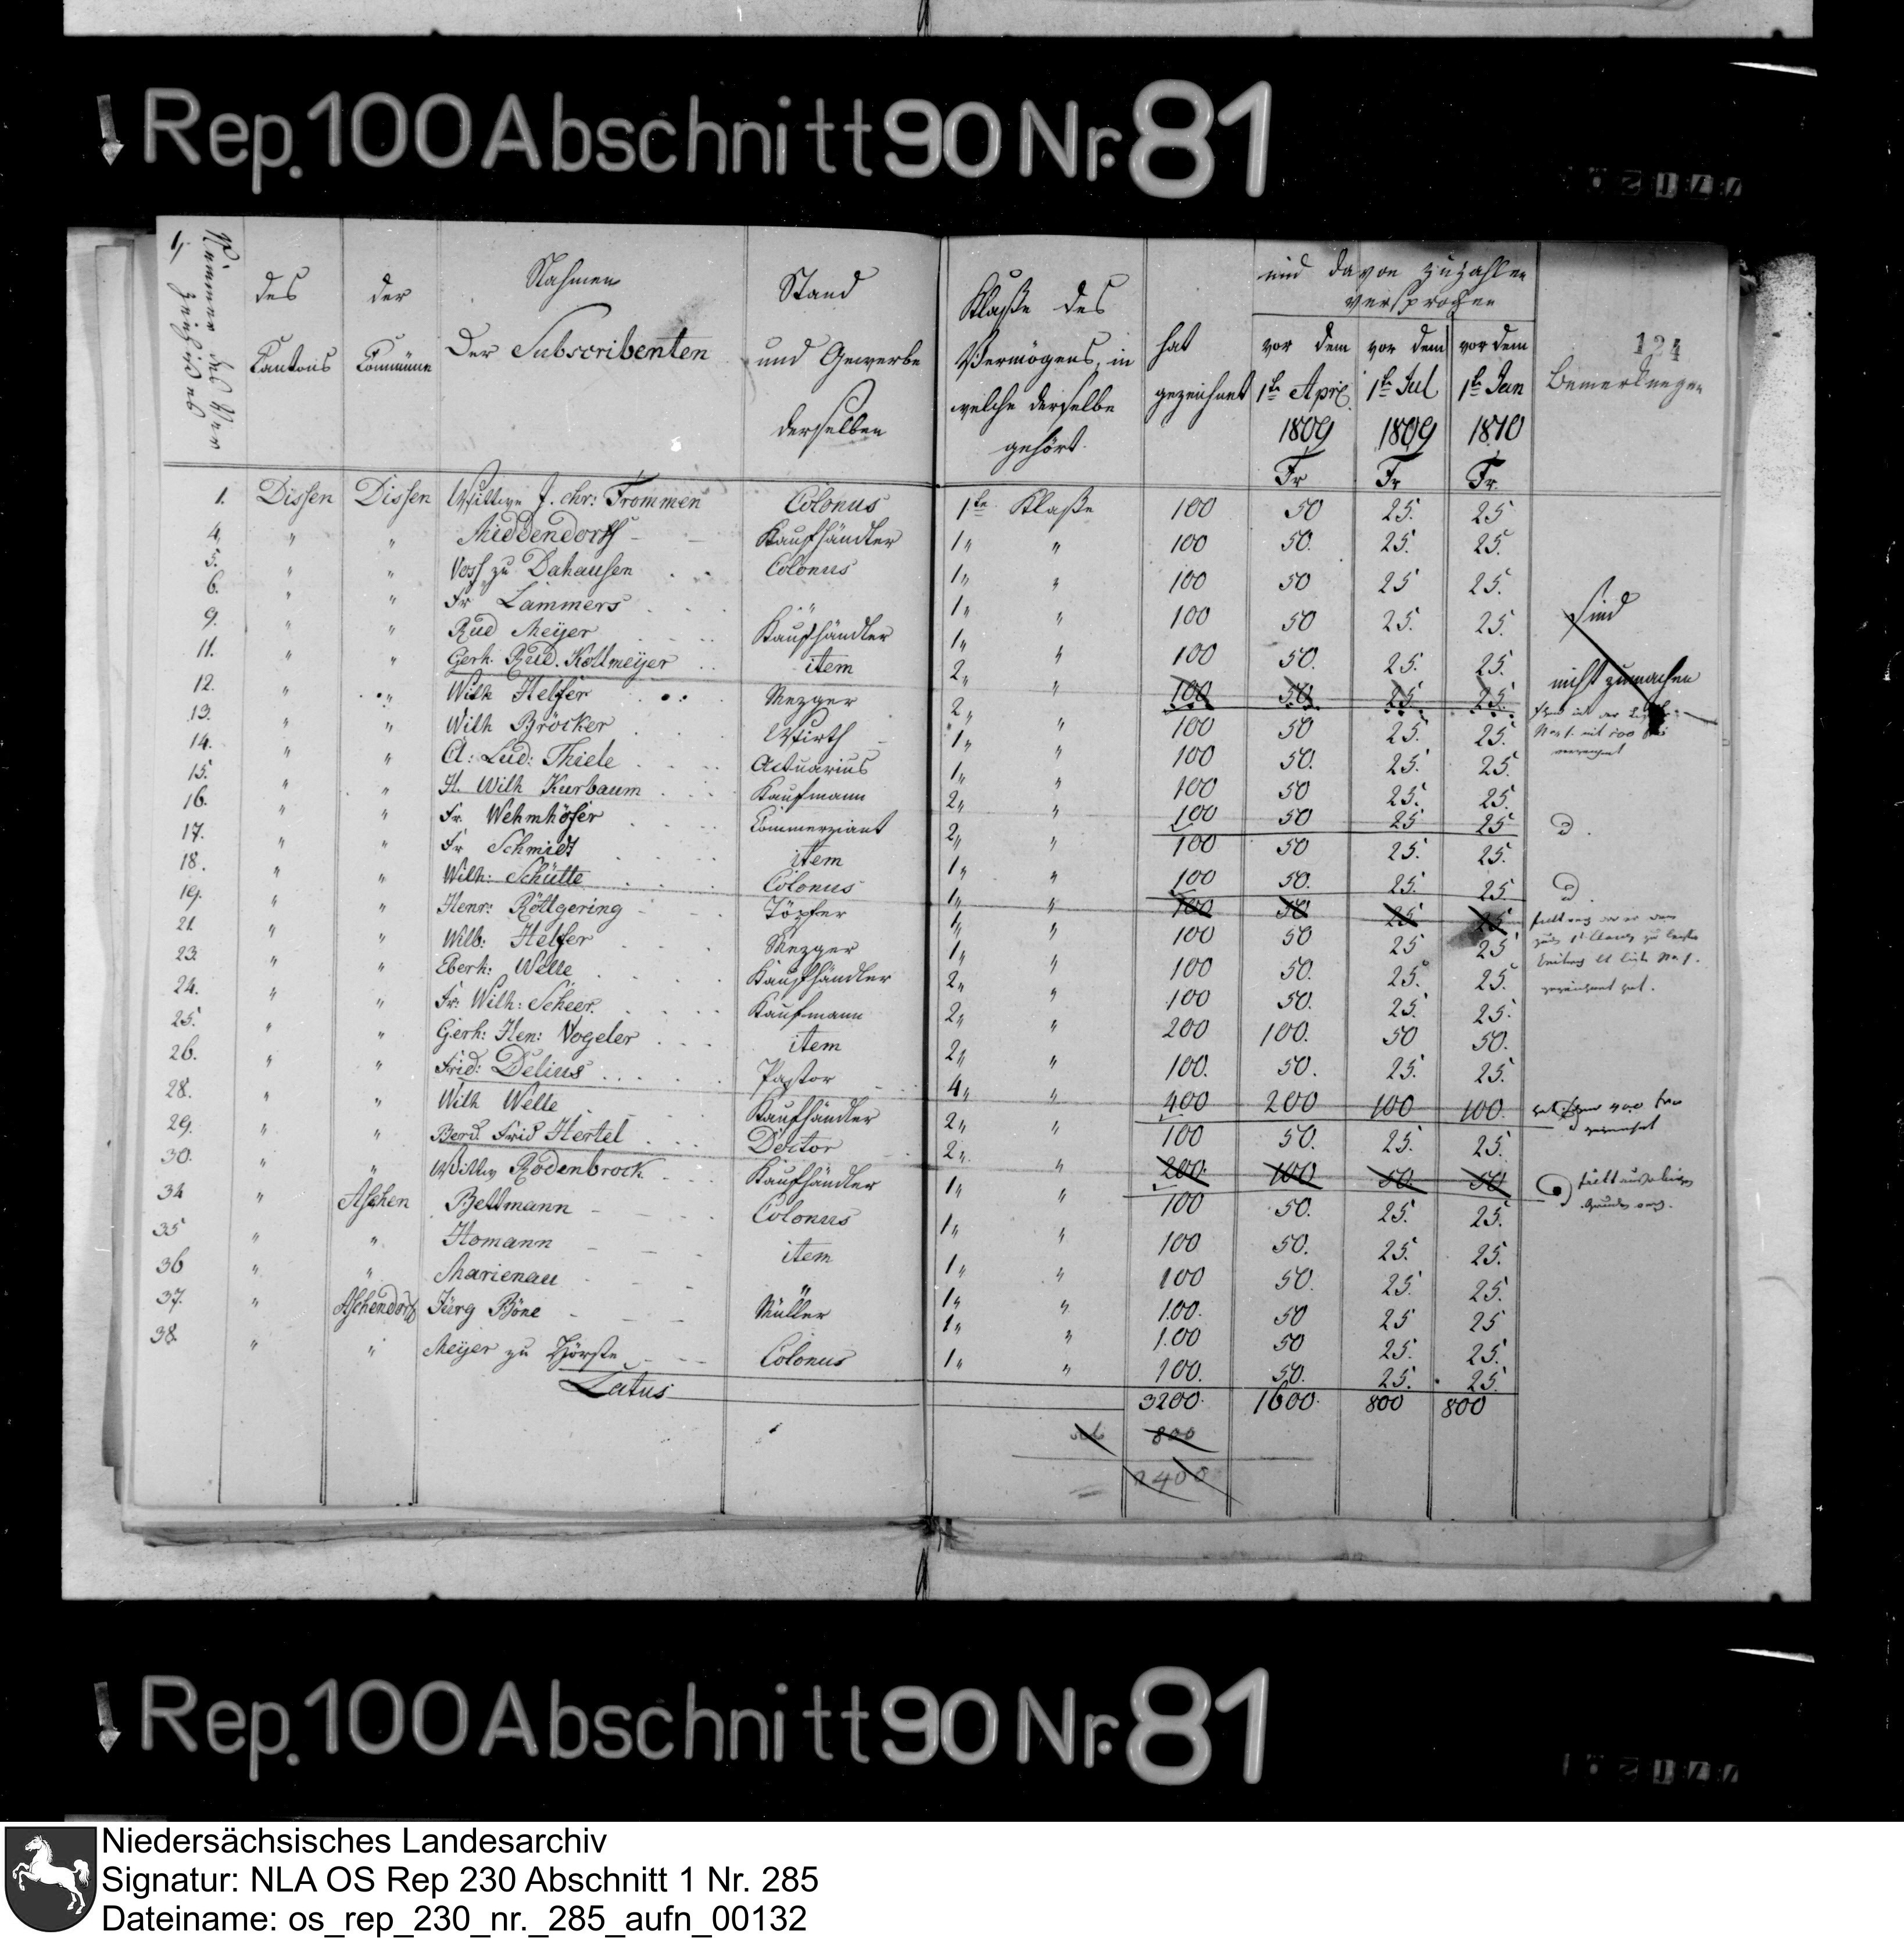 Rep. 100 Abschnitt 90 Nr. 81
1,
Nummer des Ver
zeichnißes
des Cantons
der Commüne
Nahmen
Der Subscribenten
Stand
und Gewerbe
derselben
Klaße des
Vermögens, in
welche derselbe
gehört.
hat
gezeichnet
und davon zu zahlen
versprochen
vor dem 1te April 1809 Fr
vor dem 1te Jul 1809 Fr
vor dem 1te Jan 1810 Fr.
124
Bemerkungen
1. Dissen Dissen Wittwe J. chr: Frommen Colonus 1te Klaße 100 50 25. 25
4, " " Middendorff Kaufhändler 1" " 100 50. 25. 25.
5. " " Voss zu Dahausen Colonus 1" " 100 50 25 25.
6. " " Fr Lammers " 1" " 100 50 25. 25.
9. " " Rud Meijer Kaufhändler 1" " 100 50. 25. 25.
11. " " Gerh. Rud. Kollmeijer item 2" " 100 50. 25 25. sind
12. " " Wilh Helfer Mezger 2" " 100 50 25. 25. nicht zu machen
13. " " Wilh Bröcker Wirth 1" " 100 50. 25. 25.
14. " " A: Lud: Thiele Actuarius 1" " 100 50 25. 25.
15. " " H. Wilh Kurbaum Kaufmann 2" " 100 50 25 25
16. " " Fr. Wehmhöfer Commerziant 2" " 100 50 25. 25.
17. " " Fr Schmidt item 1" " 100 50. 25. 25
18. " " Wilh: Schütte Colonus 1" " 100 50 25 25
19. " " Henr: Röttgering Töpfer 1" " 100 50 25 25
21. " " Wilh: Helfer Mezger 1" " 100 50. 25. 25.
23. " " Eberh: Welle Kaufhändler 2" " 100 50. 25. 25.
24. " " Fr: Wilh: Scheer. Kaufmann 2" " 200 100. 50 50.
25. " " Gerh: Hen: Vogeler item 2" " 100. 50. 25. 25.
26. " " Frid: Delius Pastor 4" " 400 200 100 100.
28. " " Wilh Welle Kaufhändler 2" " 100 50. 25. 25.
29. " " Berd. Frid Hertel Doctor 2" " 200. 100 50. 50
30. " " Wittw Rodenbrock Kaufhändler 1" " 100 50. 25. 25.
34 " Aschen Bettmann Colonus 1" " 100 50. 25. 25.
35 " " Homann item 1" " 100 50. 25. 25.
36 " " Marienau " 1" " 100. 50 25 25
37. " Aschendorf Jürg Böne Müller 1" " 100 50 25. 25.
38. " " Meijer zu Hörste Colonus 1" " 100. 50. 25. 25.
Latus 3200. 1600. 800 800
800
2400
Rep. 100 Abschnitt 90 Nr. 81
Niedersächsisches Landesarchiv
Signatur: NLA OS Rep 230 Abschnitt 1 Nr. 285
Dateiname: os_rep_230_nr._285_aufn_00132